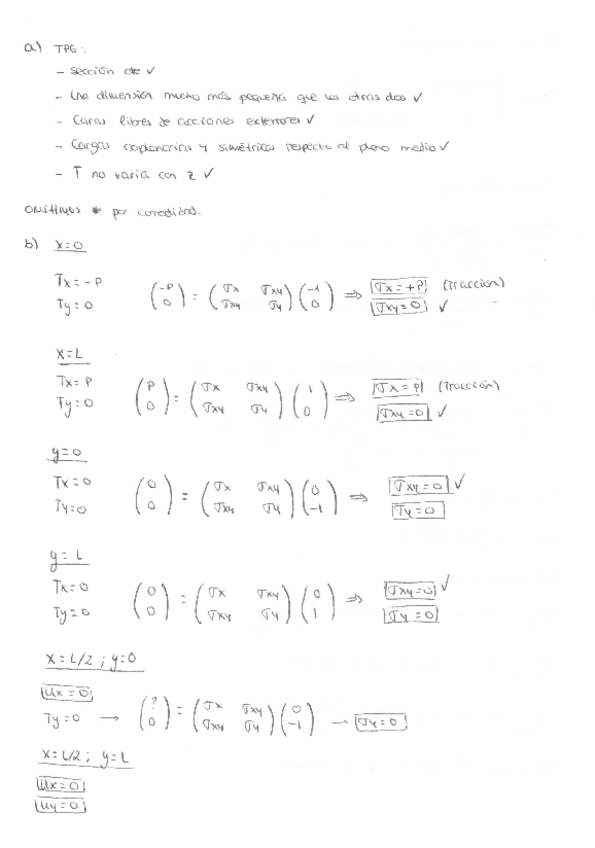 a) TPG:
- sección cte ✓
- Una dimensión mucho más pequeña que las otras dos ✓
- Caras libres de acciones exteriores ✓
- Cargas coplanarias y simétricas respecto al plano medio ✓
- T no varía con z ✓
Omitimos * por comodidad.
b) x=0
Tx = -P
Ty = 0
(-P 0) = (σx σxy σxy σy) (-1 0) ⇒ σx = +P (Tracción)
σxy = 0 ✓
x=L
Tx = P
Ty = 0
(P 0) = (σx σxy σxy σy) (1 0) ⇒ σx = P (Tracción)
σxy = 0 ✓
y=0
Tx = 0
Ty = 0
(0 0) = (σx σxy σxy σy) (0 -1) ⇒ σxy = 0 ✓
σy = 0
y = L
Tx = 0
Ty = 0
(0 0) = (σx σxy σxy σy) (0 1) ⇒ σxy = 0 ✓
σy = 0
x = L/2 ; y=0
ux = 0
Ty = 0 → (? 0) = (σx σxy σxy σy) (0 -1) → σy = 0
x = L/2 ; y = L
ux = 0
uy = 0